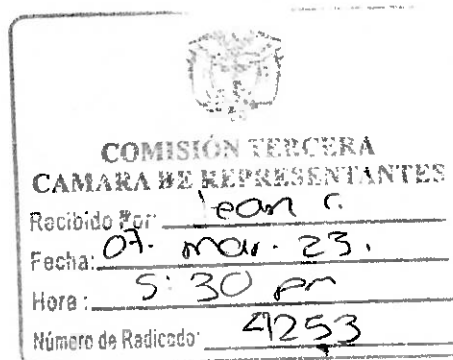 COMISIÓN TERCERA
CAMARA DE REPRESENTANTES
Recibido Por: Jean C.
Fecha: 07. mar. 23.
Hora: 5:30 pm
Número de Radicado: 4253